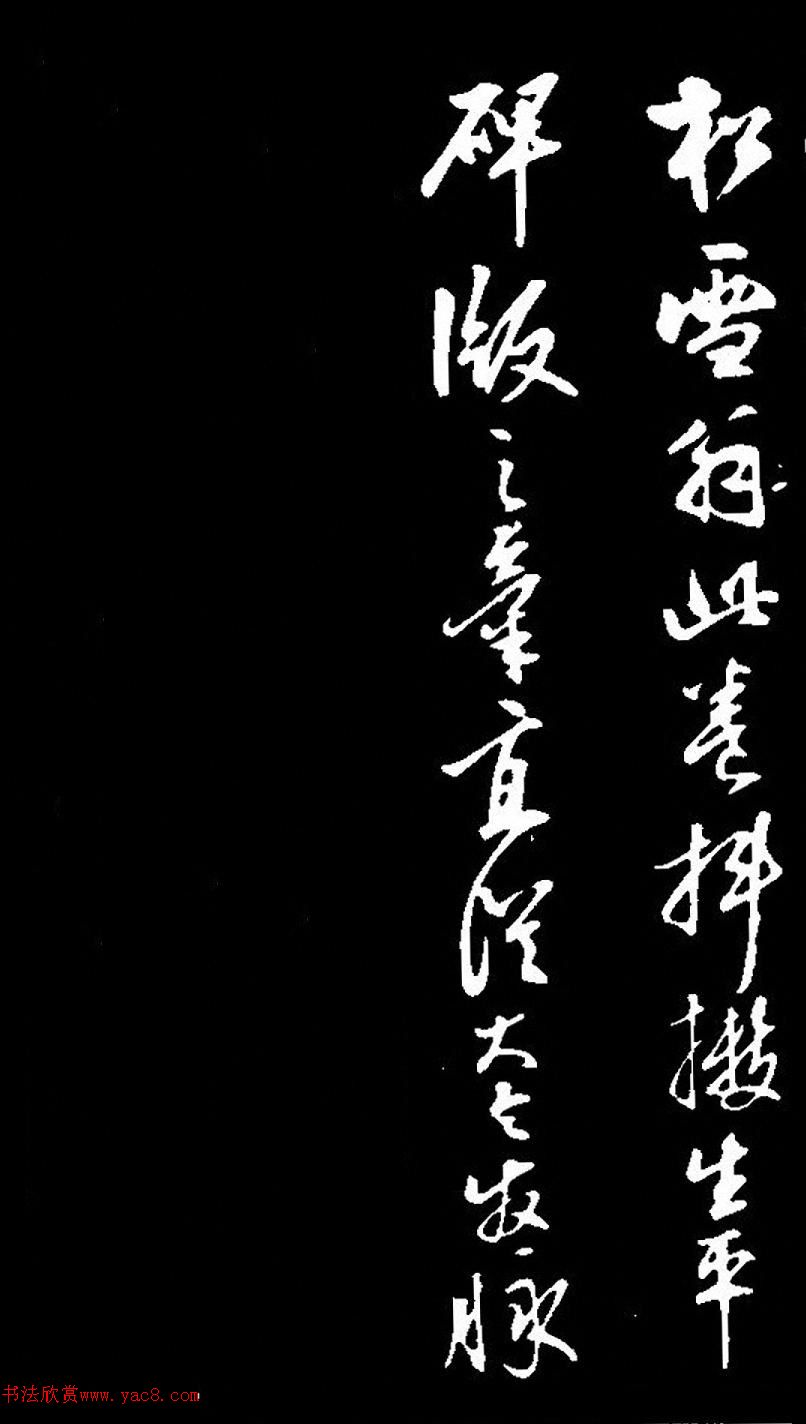 松雪翁此卷抖擞生平
碑版之业直从大令发脉
书法欣赏www.yac8.com